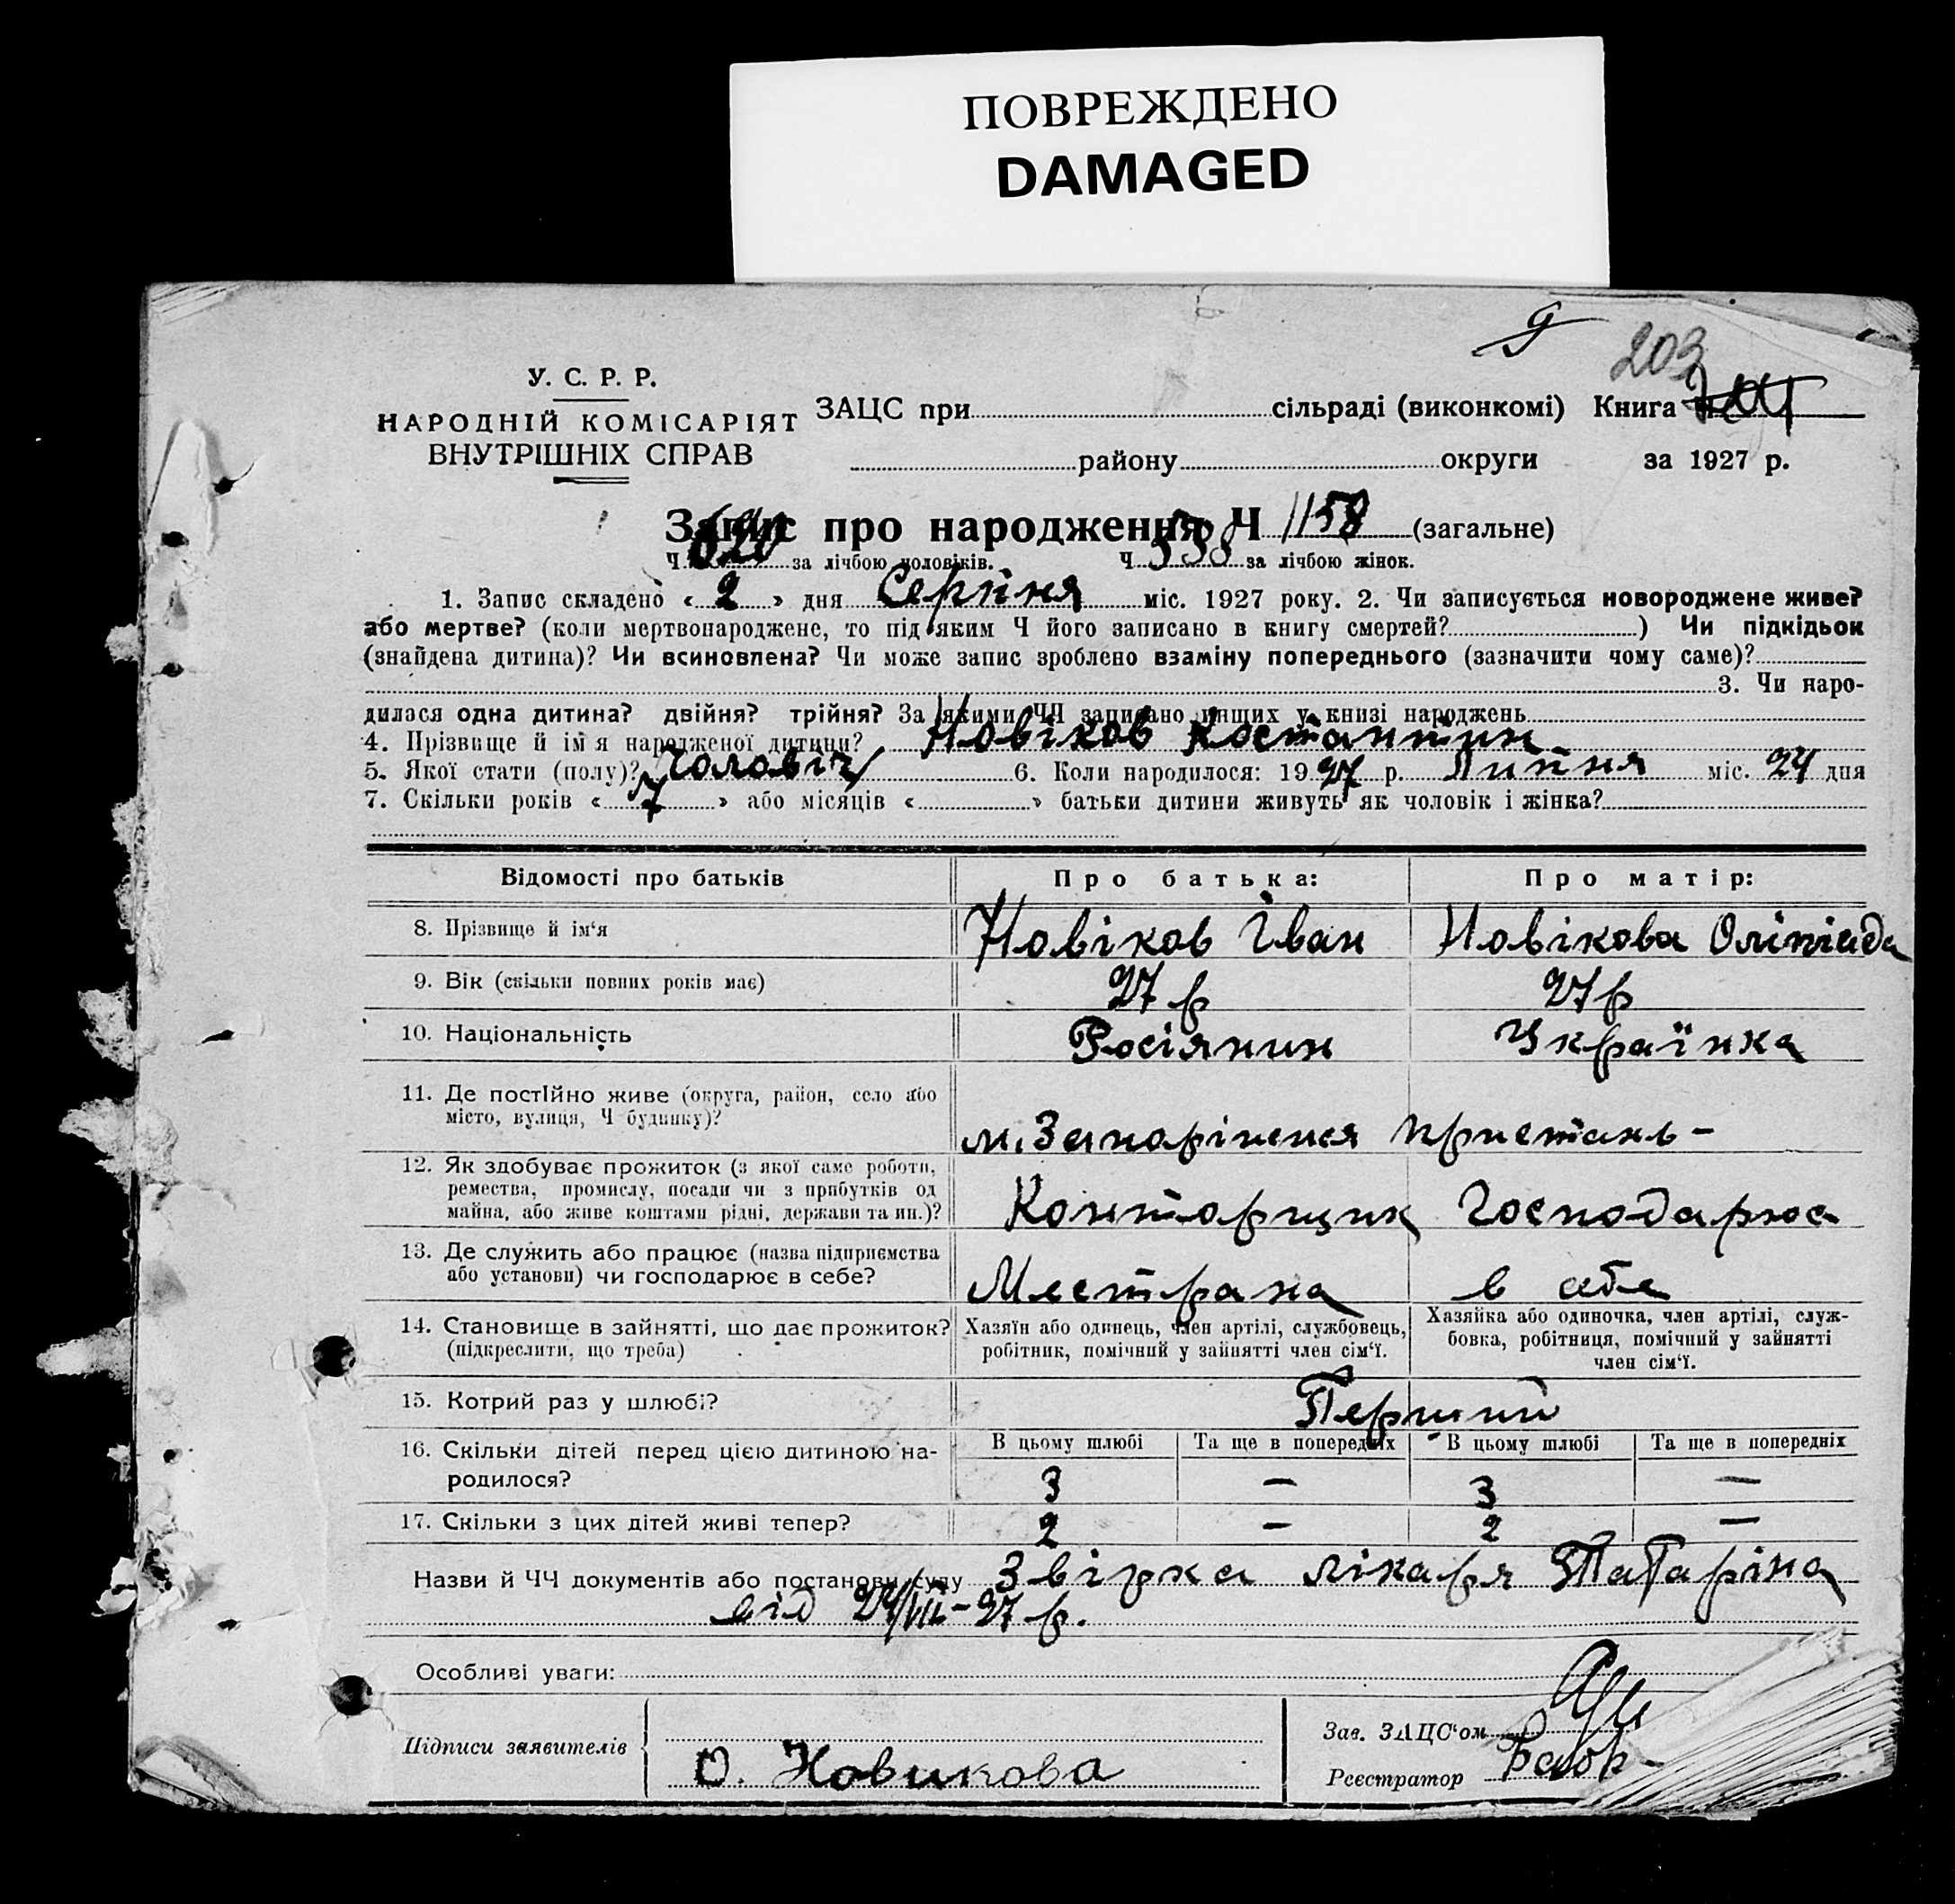 ПОВРЕЖДЕНО
DAMAGED
203
У. С. Р. Р.
НАРОДНІЙ КОМІСАРІЯТ
ВНУТРІШНІХ СПРАВ
ЗАЦС при сільраді (виконкомі) Книга
району округи за 1927 р.
Запис про народження Ч 1158 (загальне)
Ч 620 за лічбою чоловіків. Ч 538 за лічбою жінок.
1. Запис складено « 2 » дня Серпня міс. 1927 року. 2. Чи записується новороджене живе?
або мертве? (коли мертвонароджене, то під яким Ч його записано в книгу смертей? ) Чи підкідьок
(знайдена дитина)? Чи всиновлена? Чи може запис зроблено взаміну попереднього (зазначити чому саме)?
3. Чи наро-
дилася одна дитина? двійня? трійня? За якими ЧЧ записано инщих у книзі народжень
4. Прізвище й ім я народженої дитини? Новіков Костантин
5. Якої стати (полу)? Чоловіч 6. Коли народилося: 1927 р. Липня міс. 24 дня
7. Скільки років « 7 » або місяців « » батьки дитини живуть як чоловік і жінка?
Відомості про батьків Про батька: Про матір:
8. Прізвище й ім‘я Новіков Іван Новікова Оліпіяда
9. Вік (скільки повних років має) 27 р 27 р
10. Національність Росіянин Українка
11. Де постійно живе (округа, район, село або
місто, вулиця, Ч будинку)?
м. Запоріжжя пристань -
12. Як здобуває прожиток (з якої саме роботи,
ремества, промислу, посади чи з прибутків од
майна, або живе коштами рідні, держави та ин.)?
Конторщик Господарює
13. Де служить або працює (назва підприємства
або установи) чи господарює в себе?
в себе
14. Становище в зайнятті, що дає прожиток?
(підкреслити, що треба)
Хазяїн або одинець, член артілі, службовець,
робітник, помічний у зайнятті член сім‘ї.
Хазяйка або одиночка, член артілі, служ-
бовка, робітниця, помічний у зайнятті
член сім‘ї.
15. Котрий раз у шлюбі? Перший
16. Скільки дітей перед цією дитиною на-
родилося?
В цьому шлюбі Та ще в попередніх В цьому шлюбі Та ще в попередніх
3 — 3 —
17. Скільки з цих дітей живі тепер? 2 — 2 —
Назви й ЧЧ документів або постанови суду Звірка лікаря
від 24/VII-27 р.
Особливі уваги:
Підписи заявителів
О. Новикова
Зав. ЗАЦС‘ом
Реєстратор